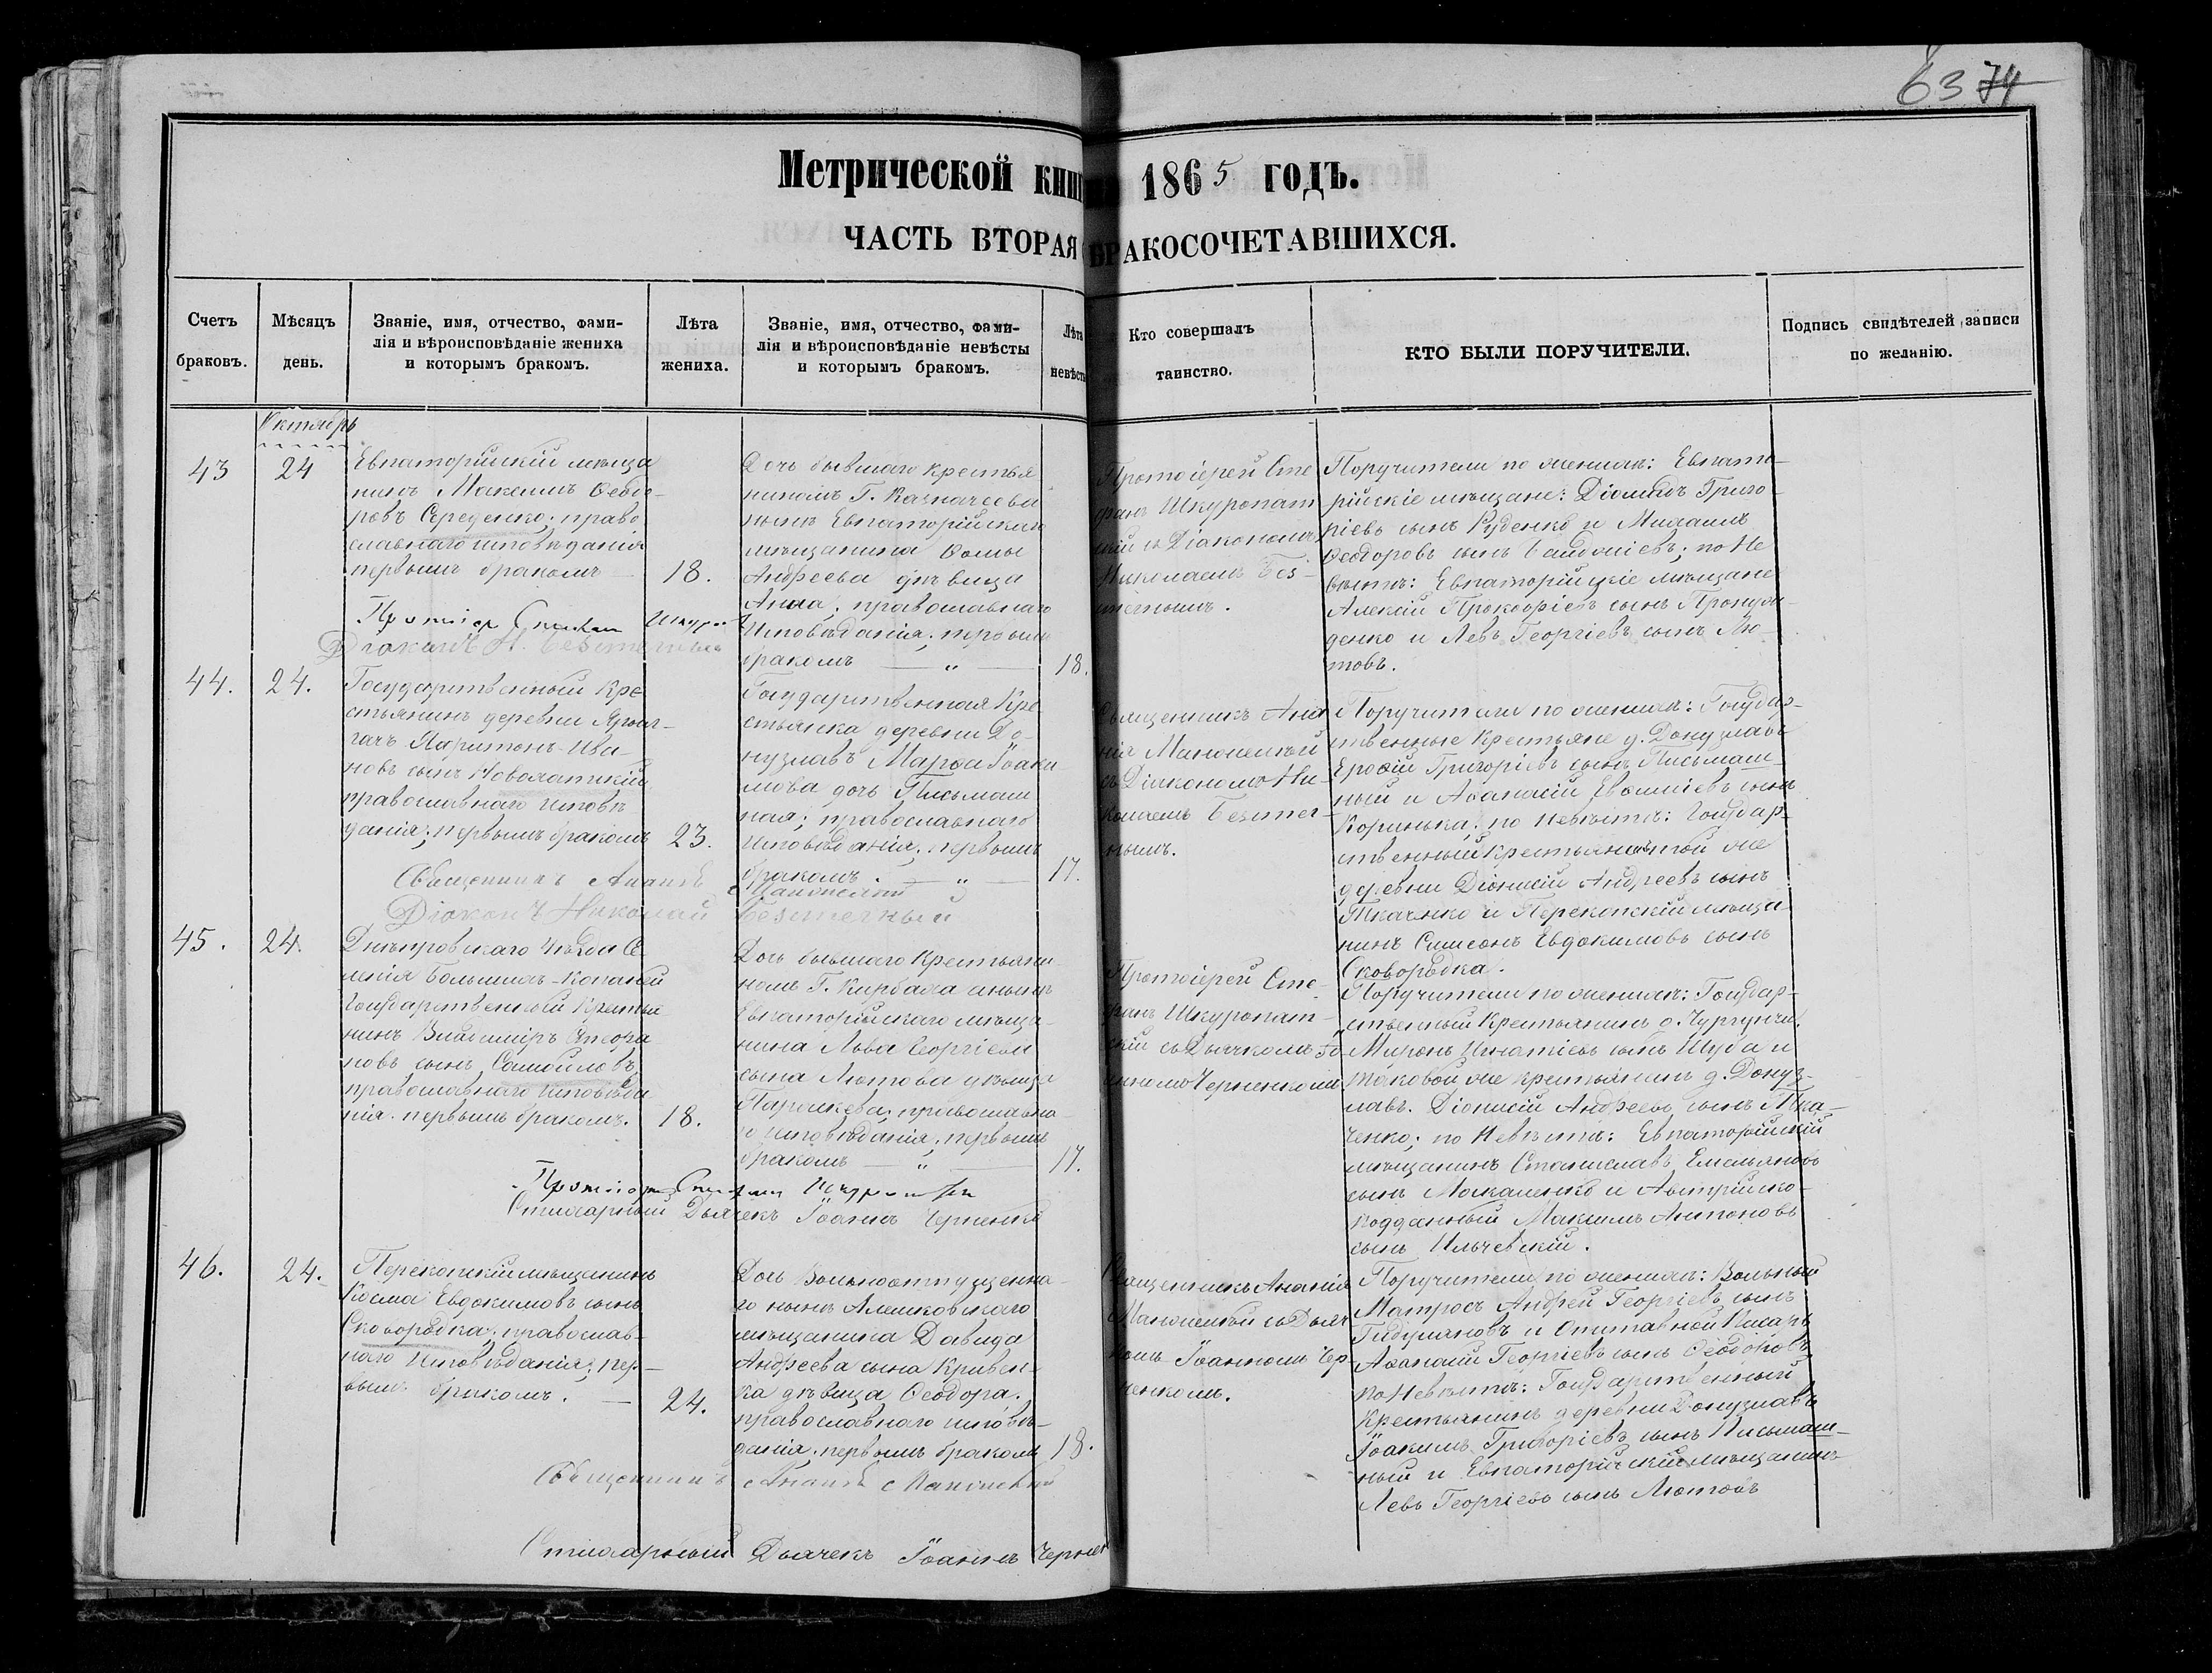 63 74
Метрической книги 1865 годъ.
ЧАСТЬ ВТОРАЯ БРАКОСОЧЕТАВШИХСЯ.
Счетъ
браковъ.
Мѣсяцъ
день.
Званіе, имя, отчество, фами-
лія и вѣроисповѣданіе жениха
и которымъ бракомъ.
Лѣта
жениха.
Званіе, имя, отчество, фами-
лія и вѣроисповѣданіе невѣсты
и которымъ бракомъ.
Лѣта
невѣсты
Кто совершалъ
таинство.
КТО БЫЛИ ПОРУЧИТЕЛИ.
Подпись свидѣтелей записи
по желанію.
Октябрь
43
24
Евпаторійскій мѣща
нинъ Максимъ Ѳеодо-
ровъ Середенко; право
славнаго исповѣданія
первымъ бракомъ
18.
Дочь бывшаго крестья
нина Г. Казначеева
нынѣ Евпаторійскаго
мѣщанина Ѳомы
Андреева дѣвица
Анна; православнаго
исповѣданія; первымъ
бракомъ — „ —
18.
Протоіерей Сте
фанъ Шкуропат
скій съ Діакономъ
Николаемъ Без-
стегнымъ.
Поручители по женихѣ: Евпато-
рійскіе мѣщане: Діомидъ Григо-
ріевъ сынъ Руденко и Михаилъ
Ѳеодоровъ сынъ; по не
вѣстѣ: Евпаторійскіе мѣщане
Алексій Прокофіевъ сынъ
денко и Левъ Георгіевъ сынъ Лю-
товъ.
Діаконъ Н. Безстегный
44.
24.
Государственный кре
стьянинъ деревни Ярыл-
гачъ Харитонъ Ива-
новъ сынъ Новохатскій
православнаго исповѣ
данія; первымъ бракомъ
23.
Государственная кре
стьянка деревни До-
нузлавъ Марѳа Іоаки-
мова дочь Письмаш
ная; православнаго
исповѣданія; первымъ
бракомъ. — „ —
17.
Священникъ Ана
нія
съ Діакономъ Ни-
колаемъ Безстег-
нымъ.
Поручители по женихѣ: Государ-
ственные крестьяне д. Донузлавъ
Ероѳій Григоріевъ сынъ Письмаш-
ный и Аѳанасій Евѳиміевъ сынъ
Коринька; по невѣстѣ: Государ-
ственный крестьянинъ той же
деревни Діонисій Андреевъ сынъ
Ткаченко и Перекопскій мѣща
нинъ Симеонъ Евдокимовъ сынъ
Сковородка.
Священникъ Ананія
Діаконъ Николай Безстегный
45.
24.
Днѣпровскаго Уѣзда Се
ленія Большихъ-Копаней
Государственный крестья
нинъ Владиміръ Стефа
новъ сынъ Самойловъ,
православнаго исповѣда
нія. первымъ бракомъ.
18.
Дочь бывшаго крестьяни
номъ Г. нынѣ
Евпаторійскаго мѣща-
нина Льва Георгіева
сына Лютова дѣвица
Параскева; православна-
го исповѣданія; первымъ
бракомъ — „ —
17.
Протоіерей Сте-
фанъ Шкуропат-
скій съ Дьячкомъ Іо-
анномъ Черненкомъ.
Поручители по женихѣ: Государ-
ственный крестьянинъ д. Чургунчи.
Миронъ Игнатіевъ сынъ Шуба и
таковой же крестьянинъ д. Донуз-
лавъ. Діонисій Андреевъ сынъ Тка-
ченко; по невѣстѣ: Евпаторійскій
мѣщанинъ Станиславъ Емельяновъ
сынъ Москаленко и Австрійско-
подданный Максимъ Антоновъ
сынъ Ильчевскій.
Стихарный Дьячекъ Іоаннъ Черненко
46.
24.
Перекопскій мѣщанинъ
Косма Евдокимовъ сынъ
Сковородка; православ-
наго исповѣданія; пер-
вымъ бракомъ. —
24.
Дочь Вольноотпущенна-
го нынѣ Алешковскаго
мѣщанина Давида
Андреева сына Кривен-
ка дѣвица Ѳеодора.
православнаго исповѣ-
данія, первымъ бракомъ
18.
Священникъ Ананія
съ Дьяч
комъ Іоанномъ Чер-
ненкомъ.
Поручители по женихѣ: Вольный
Матросъ Андрей Георгіевъ сынъ
и Отставной Писарь
Аѳанасій Георгіевъ сынъ Ѳеодоровъ
по невѣстѣ: Государственный
крестьянинъ деревни Донузлавъ
Іоакимъ Григоріевъ сынъ Письмаш-
ный и Евпаторійскій мѣщанинъ
Левъ Георгіевъ сынъ Лютовъ
Священникъ Ананія
Стихарный Дьячекъ Іоаннъ Чернен